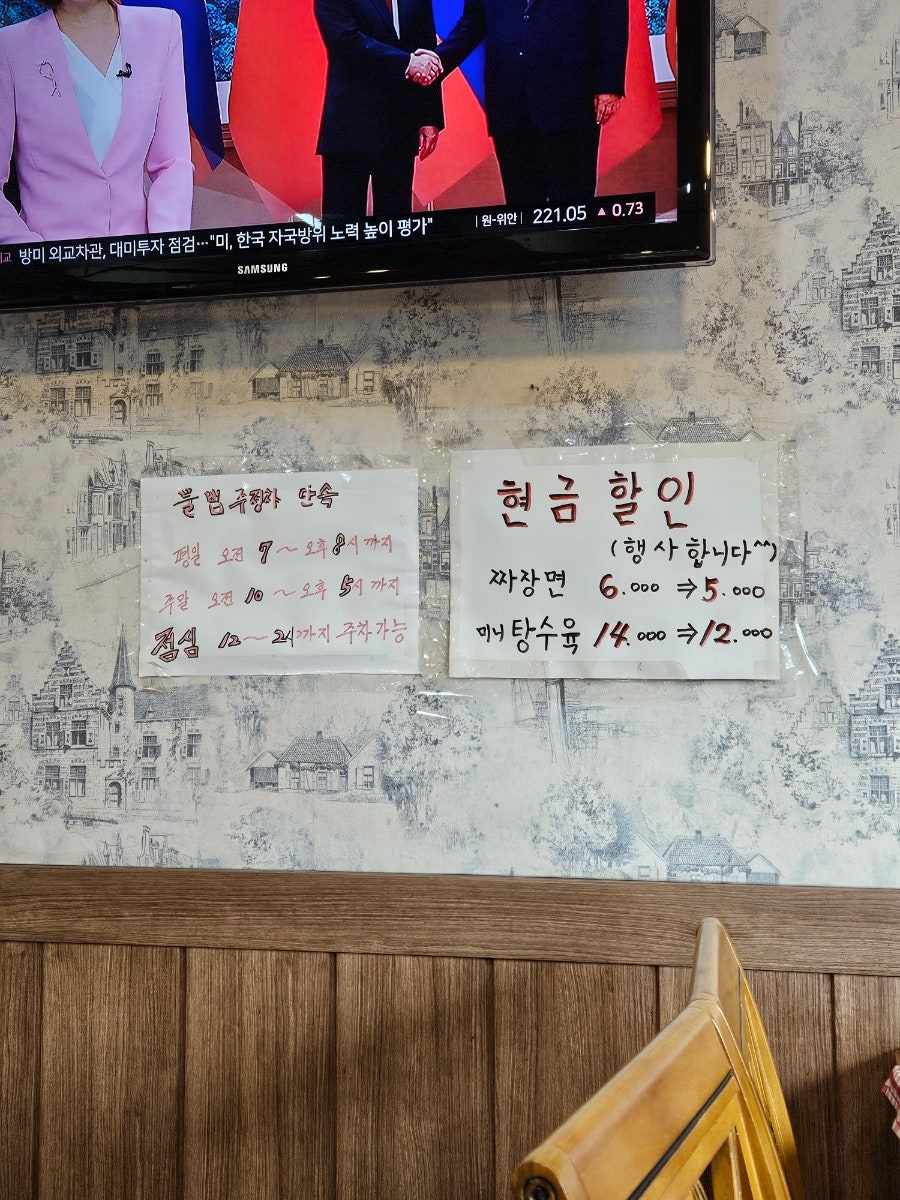 방미 외교차관, 대미투자 점검…"미, 한국 자국방위 노력 높이 평가"
원-위안 221.05 ▲ 0.73
SAMSUNG
불법주정차 단속
평일 오전 7~오후 8시까지
주말 오전 10~오후 5시까지
점심 12~2시까지 주차가능
현금 할인
(행사합니다^^)
짜장면 6.000⇒5.000
미니탕수육 14.000⇒12.000